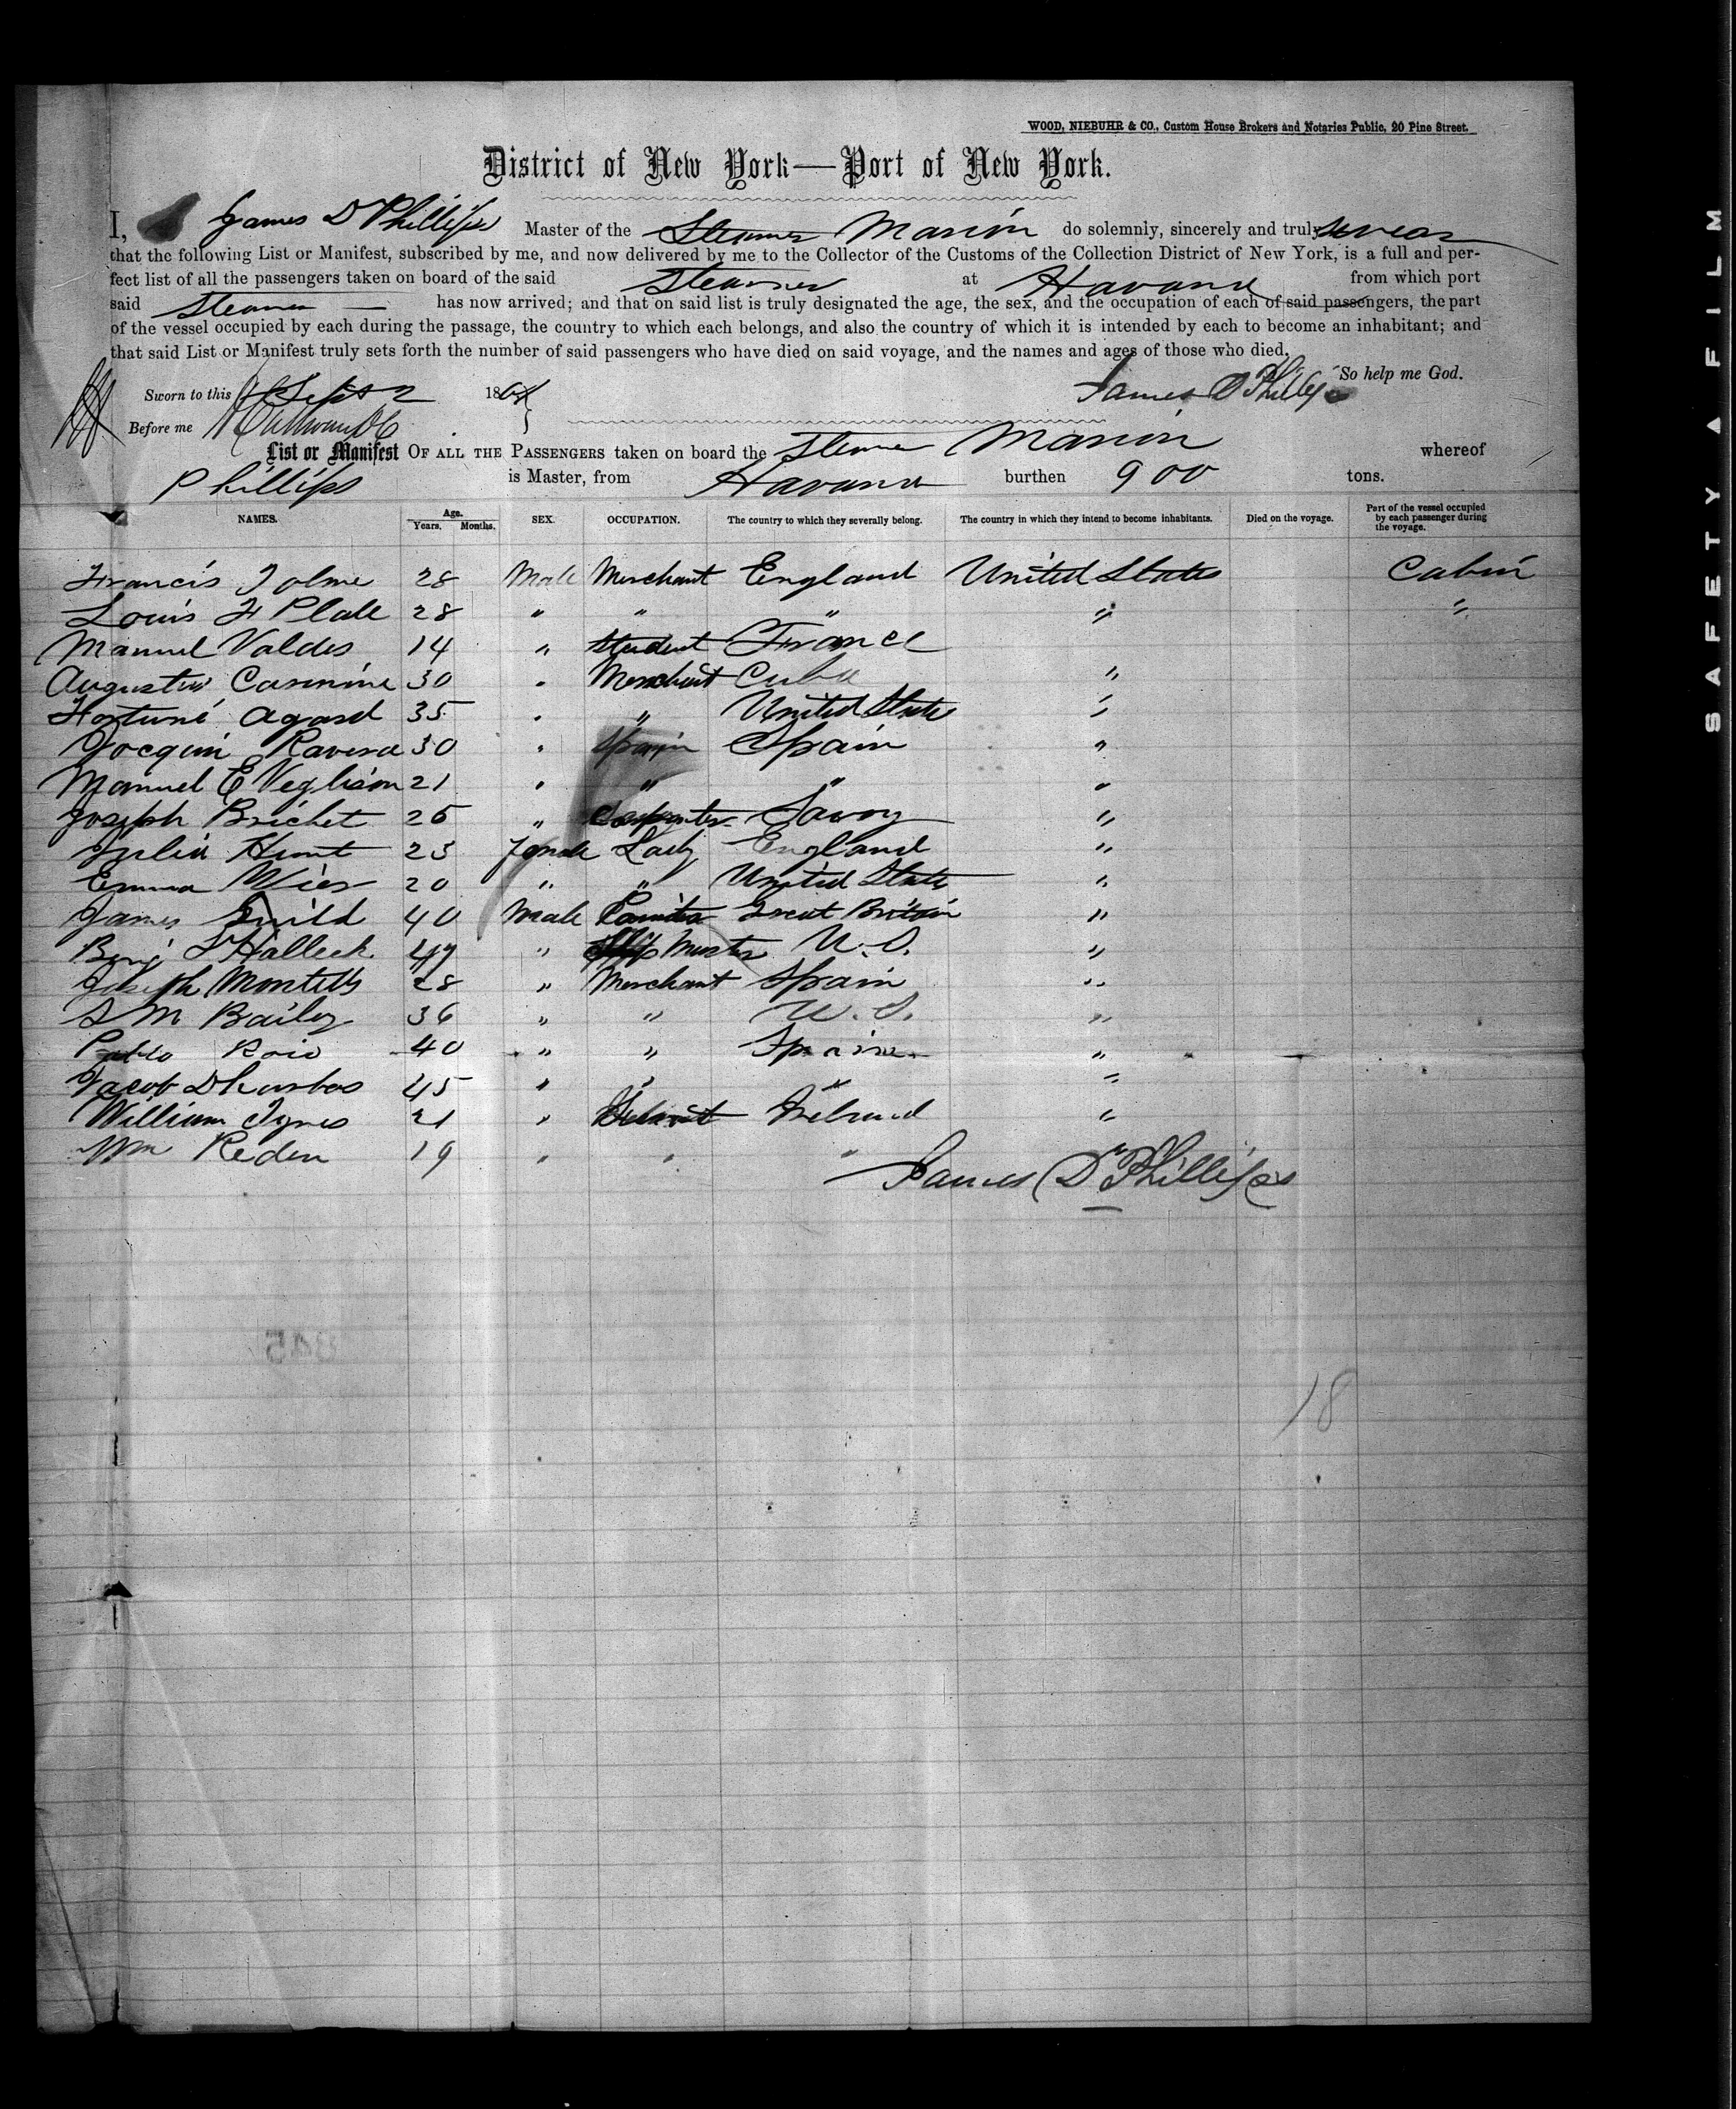 WOOD, NIEBUHR & CO., Custom House Brokers and Notaries Public, 20 Pine Street.
District of New York—Port of New York.
I, James D Phillips Master of the Steamer Marion do solemnly, sincerely and truly swear
that the following List or Manifest, subscribed by me, and now delivered by me to the Collector of the Customs of the Collection District of New York, is a full and per-
fect list of all the passengers taken on board of the said Steamer at Havana from which port
said Steamer has now arrived; and that on said list is truly designated the age, the sex, and the occupation of each of said passengers, the part
of the vessel occupied by each during the passage, the country to which each belongs, and also the country of which it is intended by each to become an inhabitant; and
that said List or Manifest truly sets forth the number of said passengers who have died on said voyage, and the names and ages of those who died.
So help me God.
Sworn to this Sept 2 186 James D Phillips
Before me
List or Manifest OF ALL THE PASSENGERS taken on board the Steamer Marion whereof
Phillips is Master, from Havana burthen 900 tons.
NAMES. Age. Years. Months. SEX. OCCUPATION. The country to which they severally belong. The country in which they intend to become inhabitants. Died on the voyage. Part of the vessel occupied by each passenger during the voyage.
Francis Tolme 28 Male Merchant England United States Cabin
Louis F Plate 28 " " " " "
Manuel Valdes 14 " Student France
Augustin 30 " Merchant Cuba "
Fortuné Agard 35 " " United States "
Jocquin Ravera 30 " Spain Spain "
Manuel E 21 " " " "
Joseph Brichet 26 " Carpenter Savoy "
Julia Hunt 23 Female Lady England "
Emma Wier 20 " " United States "
James Guild 40 Male Great Britain "
Benj Halleck 47 " Ship Master U.S. "
Joseph 28 " Merchant Spain "
S M Bailey 36 " " U.S. "
Pablo 40 " " Spain "
Jacob 45 " " " "
William Tynes 21 " Ireland "
Wm Reden 19 " " "
James D Phillips
345
18
SAFETY ▲ FILM